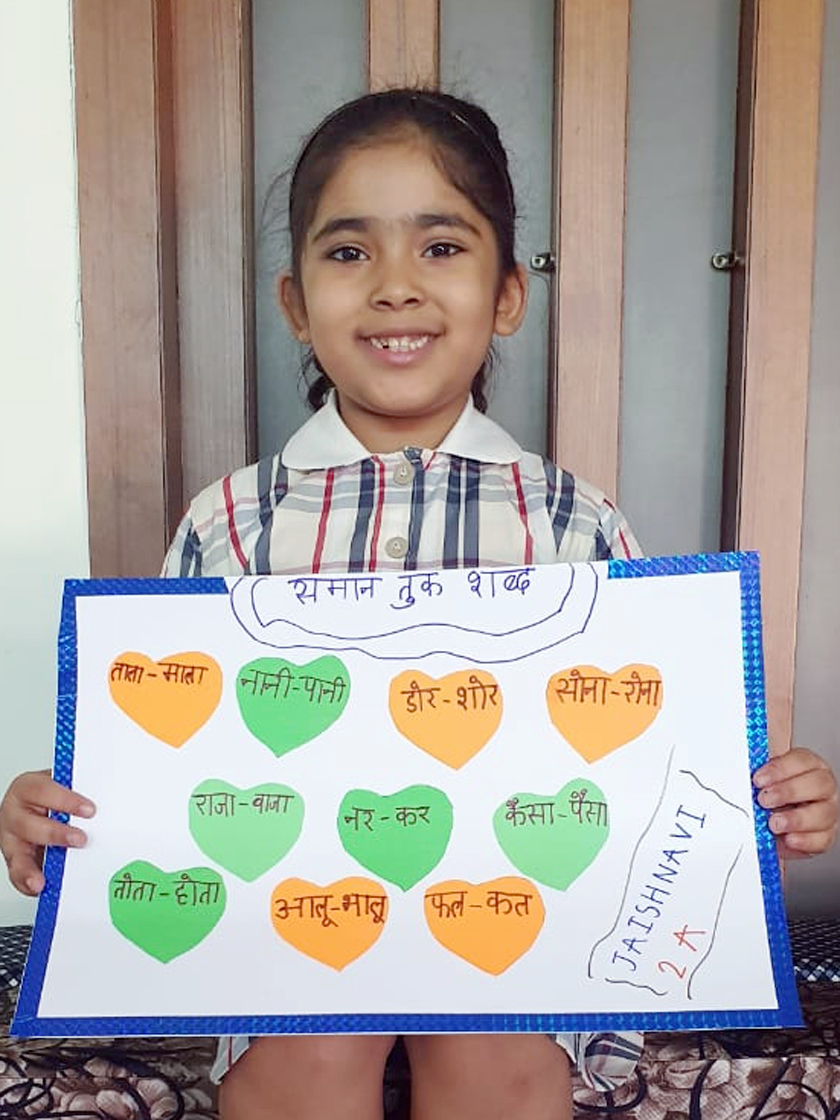 समान तुक शब्द
ताला-माला
नानी-पानी
डोर-शोर
सोना-रोना
राजा-वाजा
नर-कर
कैसा-पैसा
तोता-होता
आलू-भालू
फल-कल
JAISHNAVI
2 A